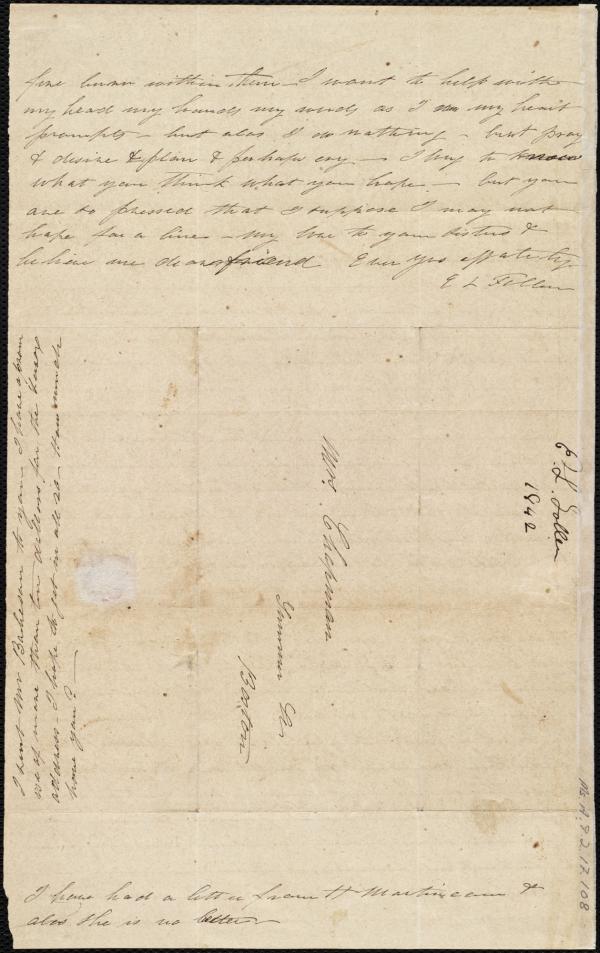 fire burn within them - I want to help with
my head my hands my words as I in my heart
prompts - but alas I do nothing - but pray
& desire & plan & perhaps cry - I long to know
what you think what you hope - but you
are so pressed that I suppose I may not
hope for a line - my love to your sisters &
believe me dear friend Ever yrs affately
E L Follen
I sent Mr to you - I have a prom
ise of more than ten dollars for the
address - I hope to get in all 20 - How much
have you? -
Mrs. Chapman
Summer St.
Boston
E. L. Follen
1842
Ms. A. 9. 2. 17. 108
I have had a letter from H Martineau &
alas she is no better -